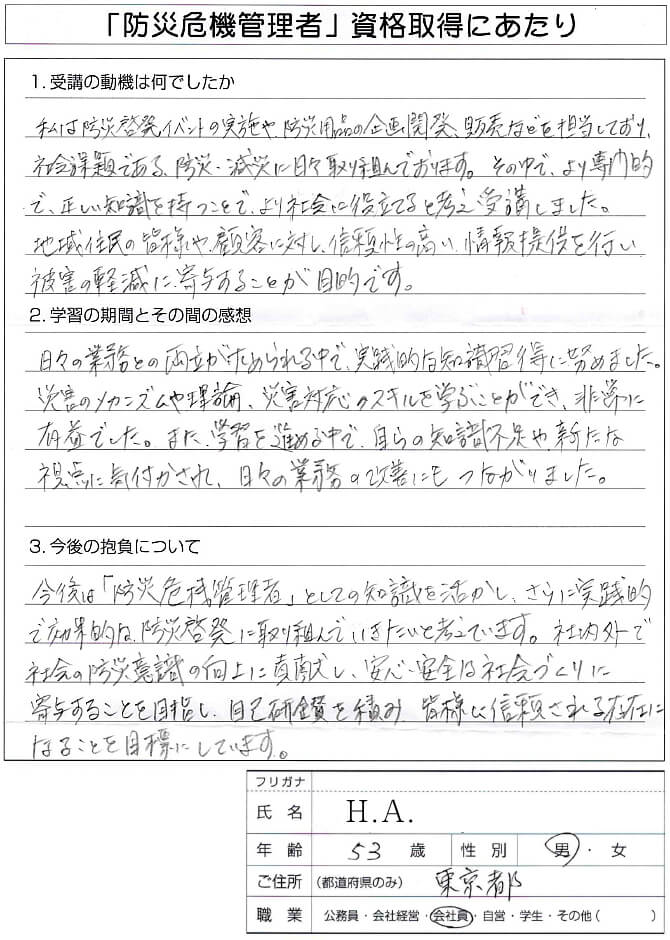 「防災危機管理者」資格取得にあたり
1. 受講の動機は何でしたか
私は防災啓発イベントの実施や防災用品の企画開発、販売などを担当しており、
社会課題である、防災・減災に日々取り組んでおります。その中で、より専門的
で、正しい知識を持つことで、より社会に役立てると考え受講しました。
地域住民の皆様や、顧客に対し、信頼性の高い、情報提供を行い
被害の軽減に寄与することが目的です。
2. 学習の期間とその間の感想
日々の業務との両立がためられる中で、実践的な知識習得に努めました。
災害のメカニズムや理論、災害対応のスキルを学ぶことができ、非常に
有益でした。また、学習を進める中で、自らの知識不足や、新たな
視点に気付かされ、日々の業務の改善にもつながりました。
3. 今後の抱負について
今後は「防災危機管理者」としての知識を活かし、さらに実践的
で効果的な、防災啓発に取り組んでいきたいと考えています。社内外で
社会の防災意識の向上に貢献し、安心・安全な社会づくりに
寄与することを目指し、自己研鑽を積み 皆様に信頼される存在に
なることを目標にしています。
フリガナ
氏名 H.A.
年齢 53 歳 性別 男・女
ご住所 (都道府県のみ) 東京都
職業 公務員・会社経営・会社員・自営・学生・その他( )